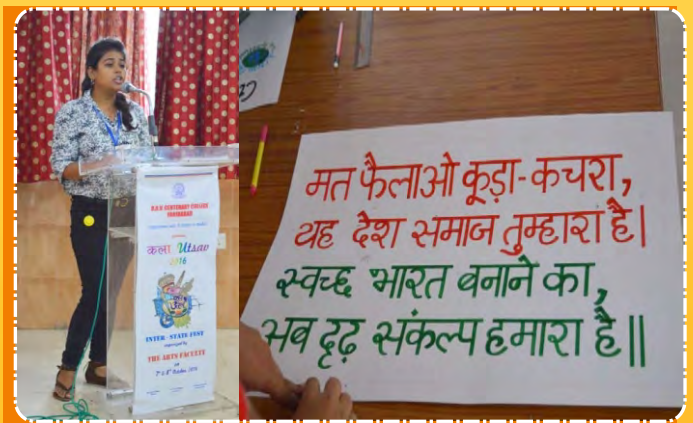 D.A.V. CENTENARY COLLEGE
FARIDABAD
कला Utsav
2016
INTER-STATE FEST
organised by
THE ARTS FACULTY
on
मत फैलाओ कूड़ा-कचरा,
यह देश समाज तुम्हारा है।
स्वच्छ भारत बनाने का,
अब दृढ़ संकल्प हमारा है॥